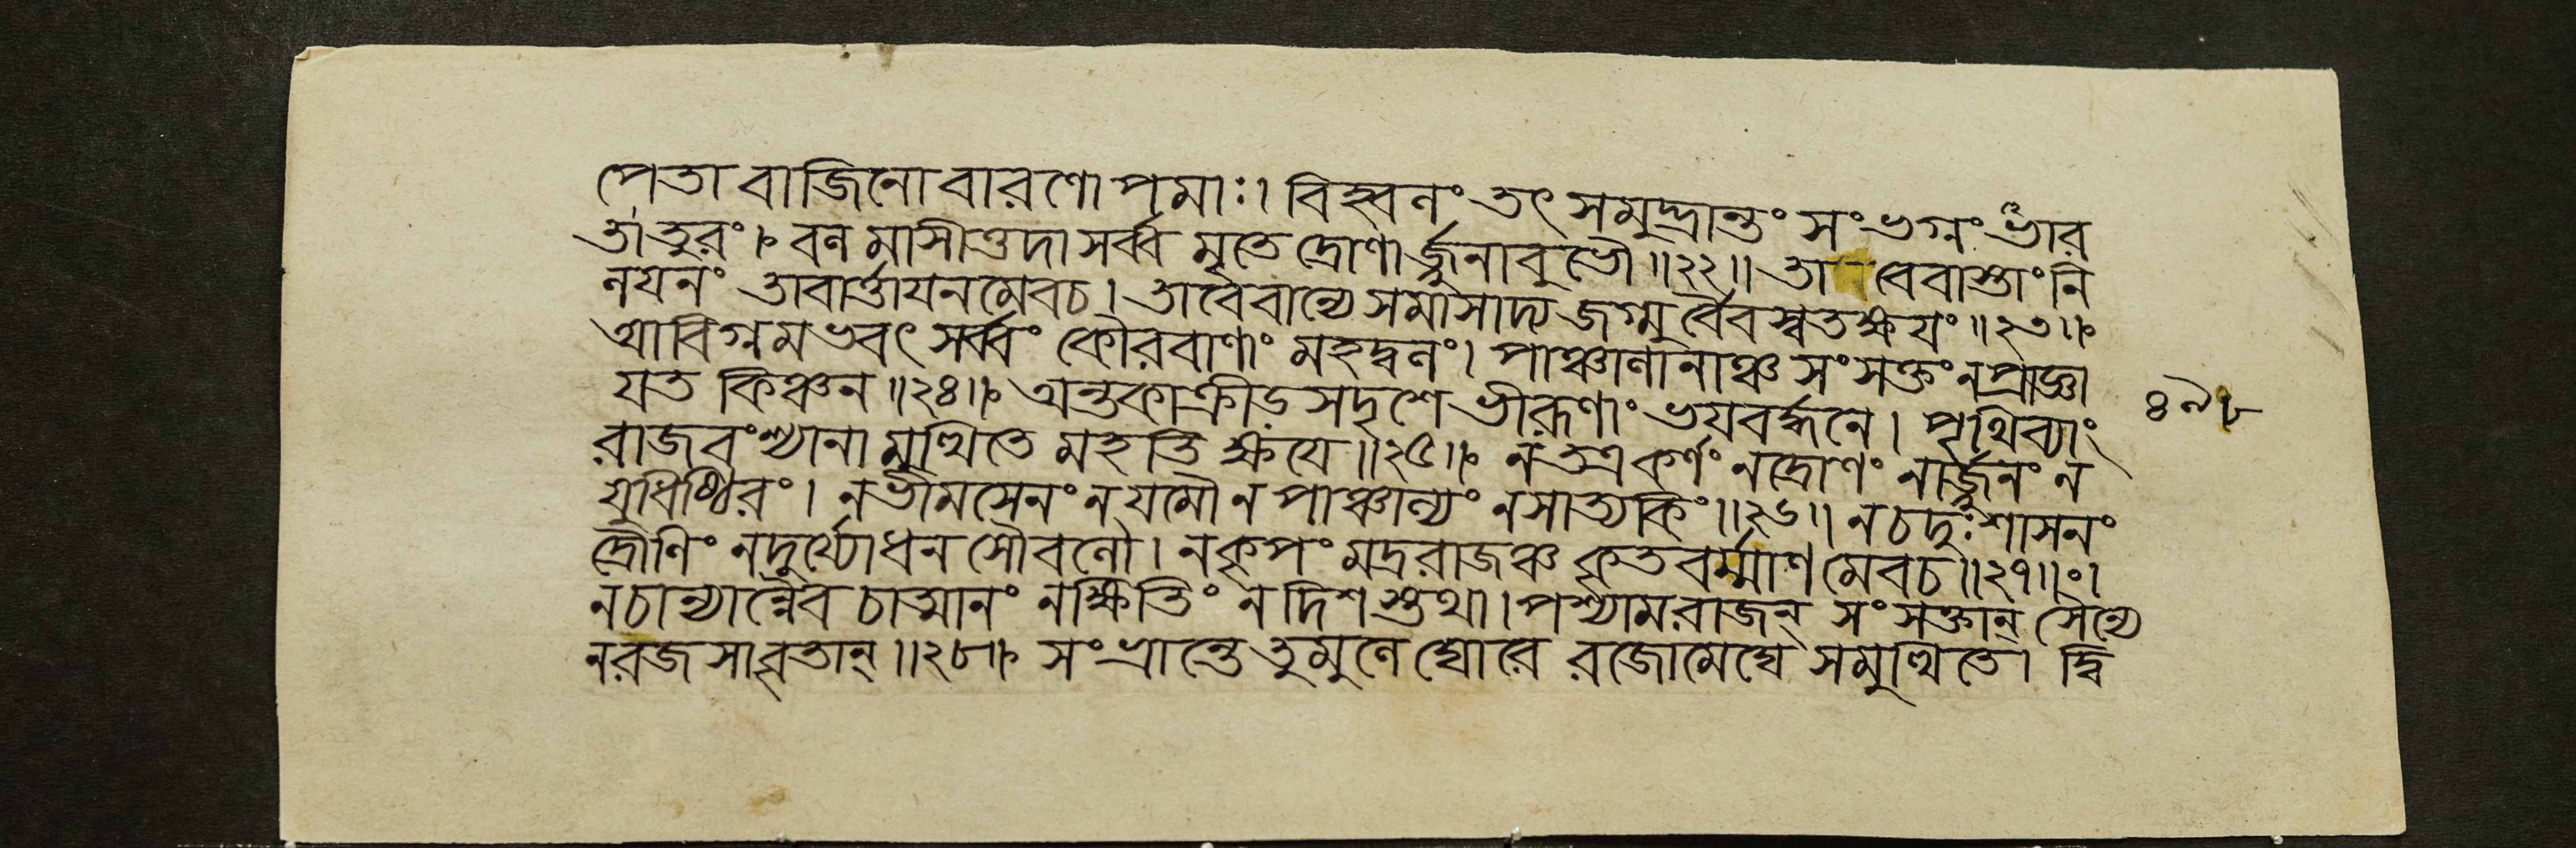 পেতা বাজিনো বারণোপমাঃ। বিহ্বলং তৎ সমুদ্ভ্রান্তং সংভগ্নং ভার
তাতুরং॥ বলমাসীত্তদা সর্ব্ব মৃতে দ্রোণার্জ্জুনাবুভৌ॥২২॥ তা বেবাস্তাং নি
লযনং তাবার্ত্তাযনমেবচ। তাবেবান্যে সমাসাদ্য জগ্মুর্বৈবস্বতক্ষযং॥২৩॥
আবিগ্নমভবৎ সর্ব্বং কৌরবাণাং মহদ্বলং। পাঞ্চালানাঞ্চ সংসক্তং ন প্রাজ্ঞা
যত কিঞ্চন॥২৪॥ অন্তকাক্রীড়সদৃশে ভীরূণাং ভযবর্দ্ধনে। পৃথিব্যাং
রাজবংশ্যানামুত্থিতে মহতি ক্ষযে॥২৫॥ ন তত্র কর্ণং ন দ্রোণং নার্জ্জুনং ন
যুধিষ্ঠিরং। ন ভীমসেনং ন যমৌ ন পাঞ্চাল্যং ন সাত্যকিং॥২৬॥ ন চ দুঃশাসনং
দ্রৌণিং ন দুর্য্যোধন সৌবলৌ। ন কৃপং মদ্ররাজঞ্চ কৃতবর্ম্মাণমেবচ॥২৭॥০।
ন চান্যান্নৈব চাত্মানং ন ক্ষিতিং ন দিশস্তথা। পশ্যাম রাজন্ সংসক্তান্ সৈন্যে
ন রজসাবৃতান্॥২৮॥ সংভ্রান্তে তুমুলে ঘোরে রজোমেঘে সমুত্থিতে। দ্বি